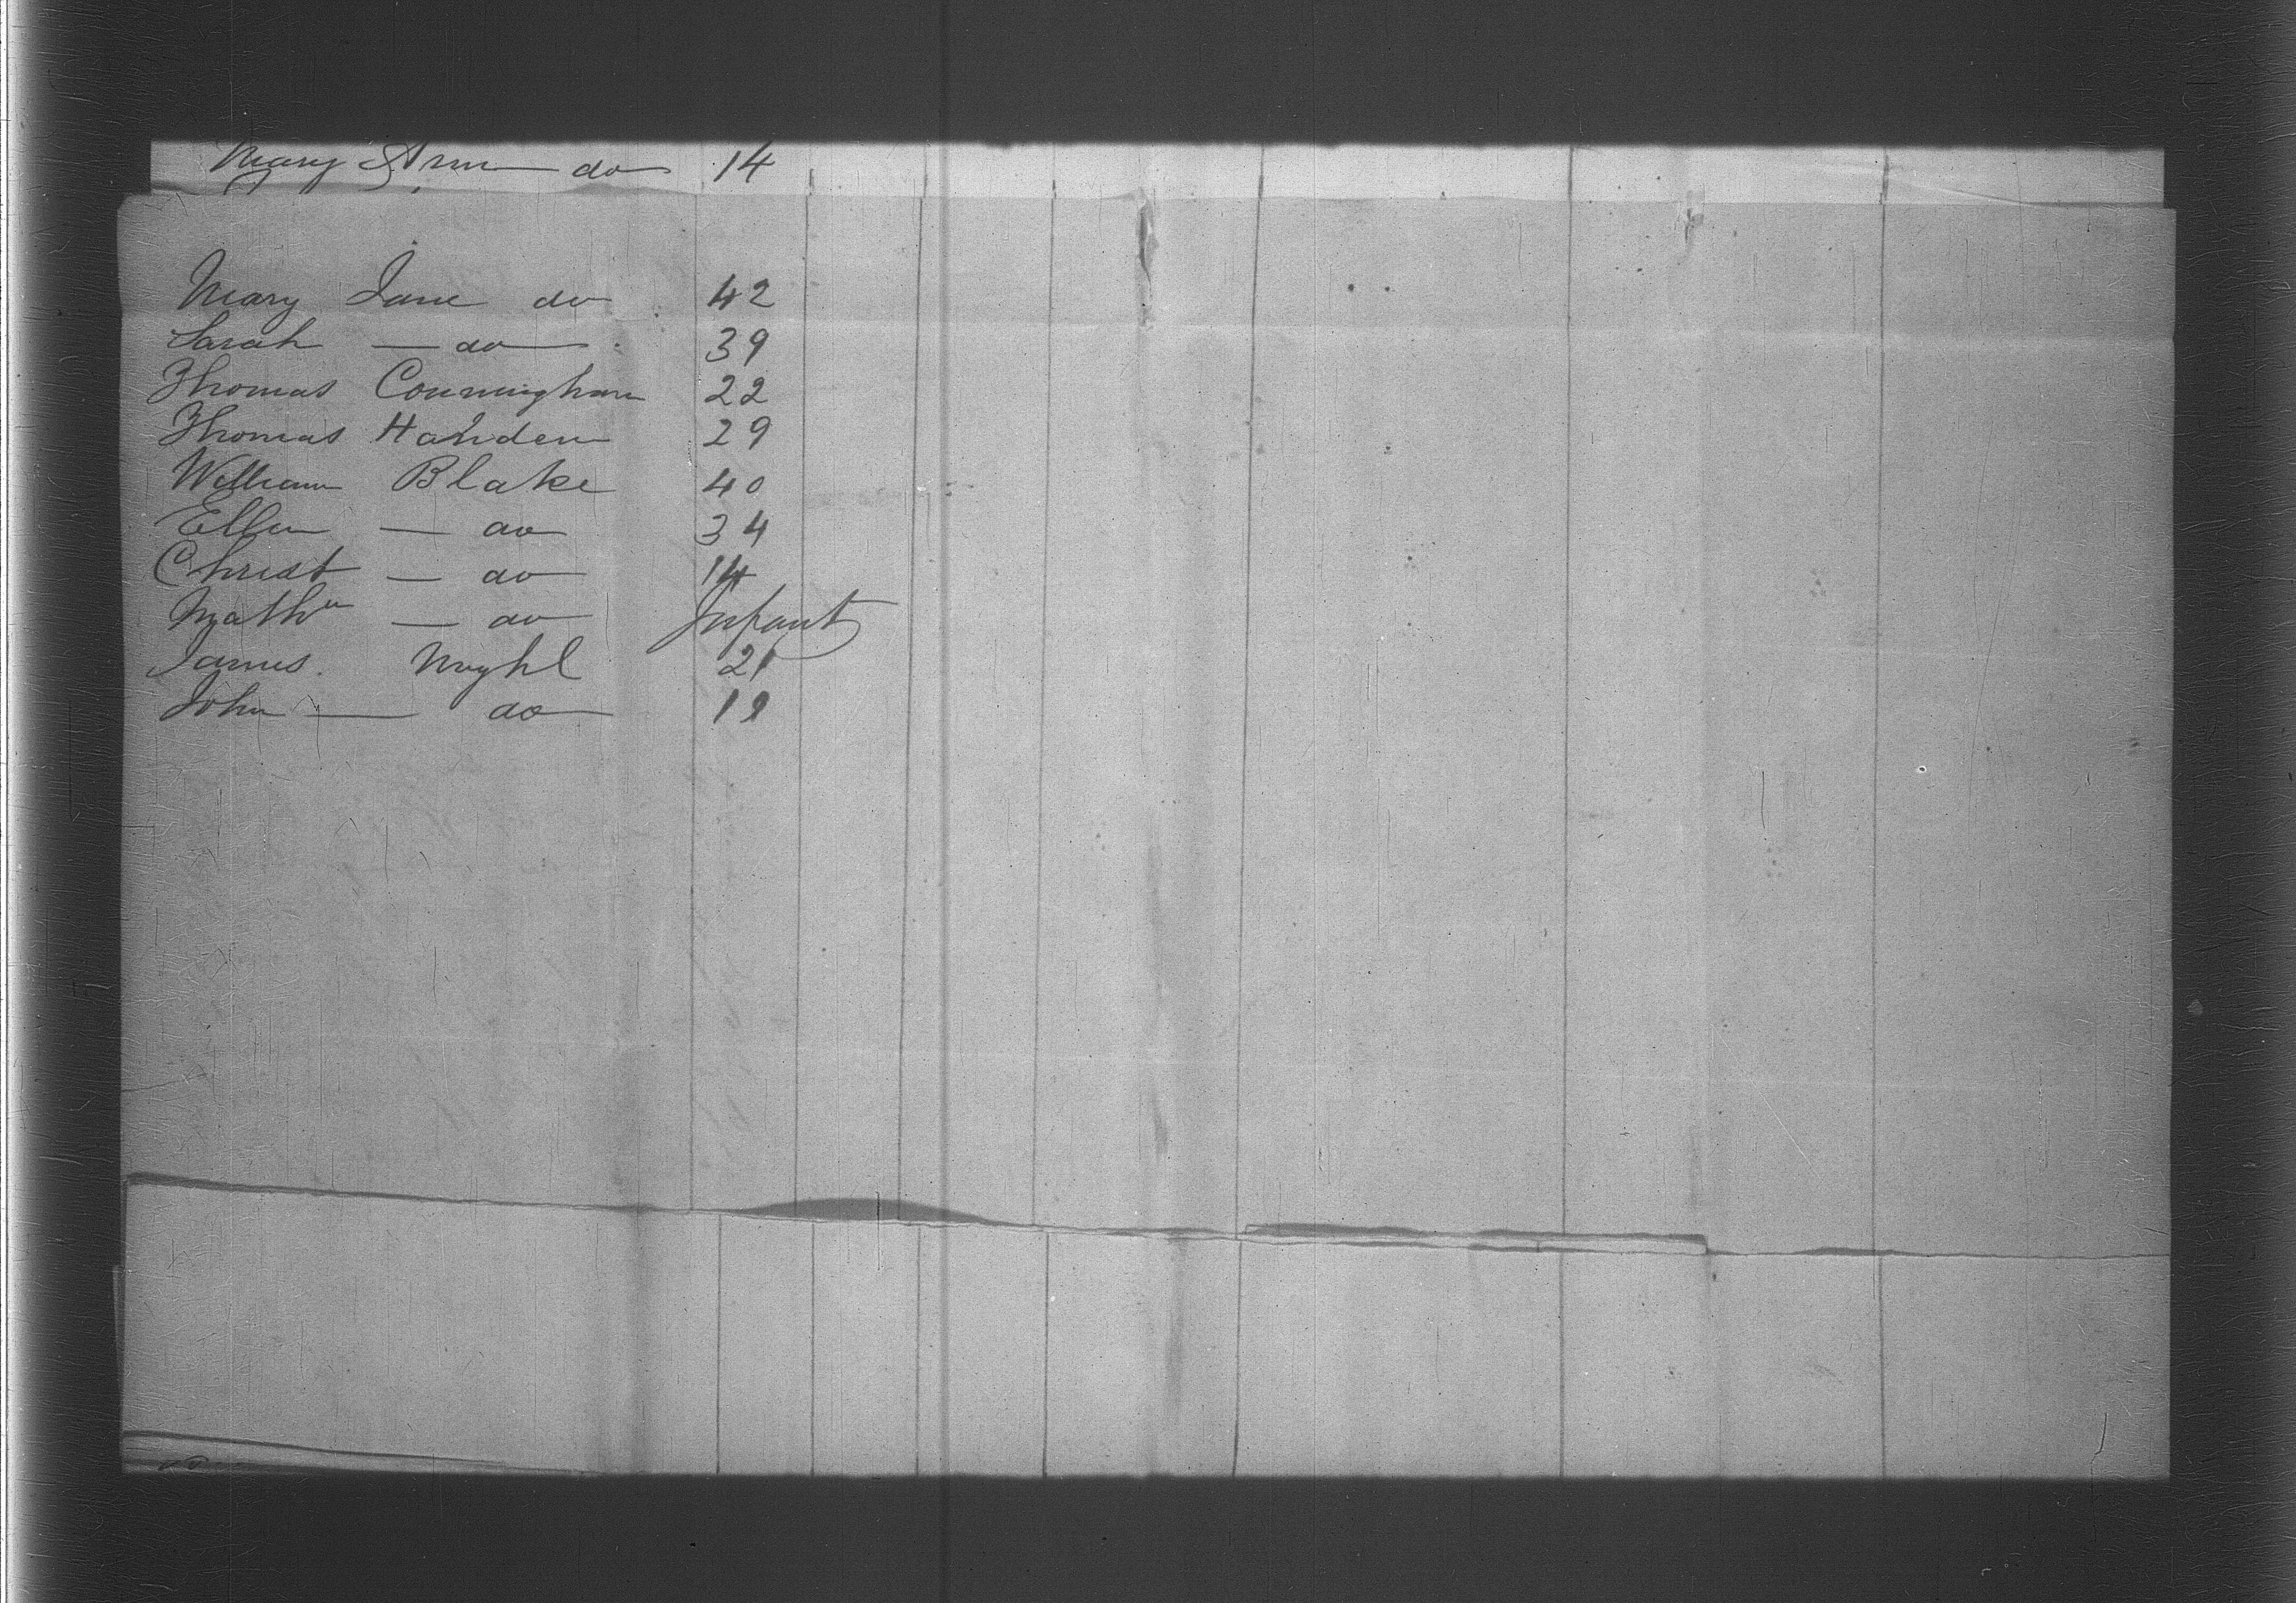 Mary Ann do 14
Mary Jane do 42
Sarah — do — 39
Thomas Counningham 22
Thomas 29
William Blake 40
Ellen — do 34
Christ — do 14
Mathw — do Infant
James 21
John — do 19